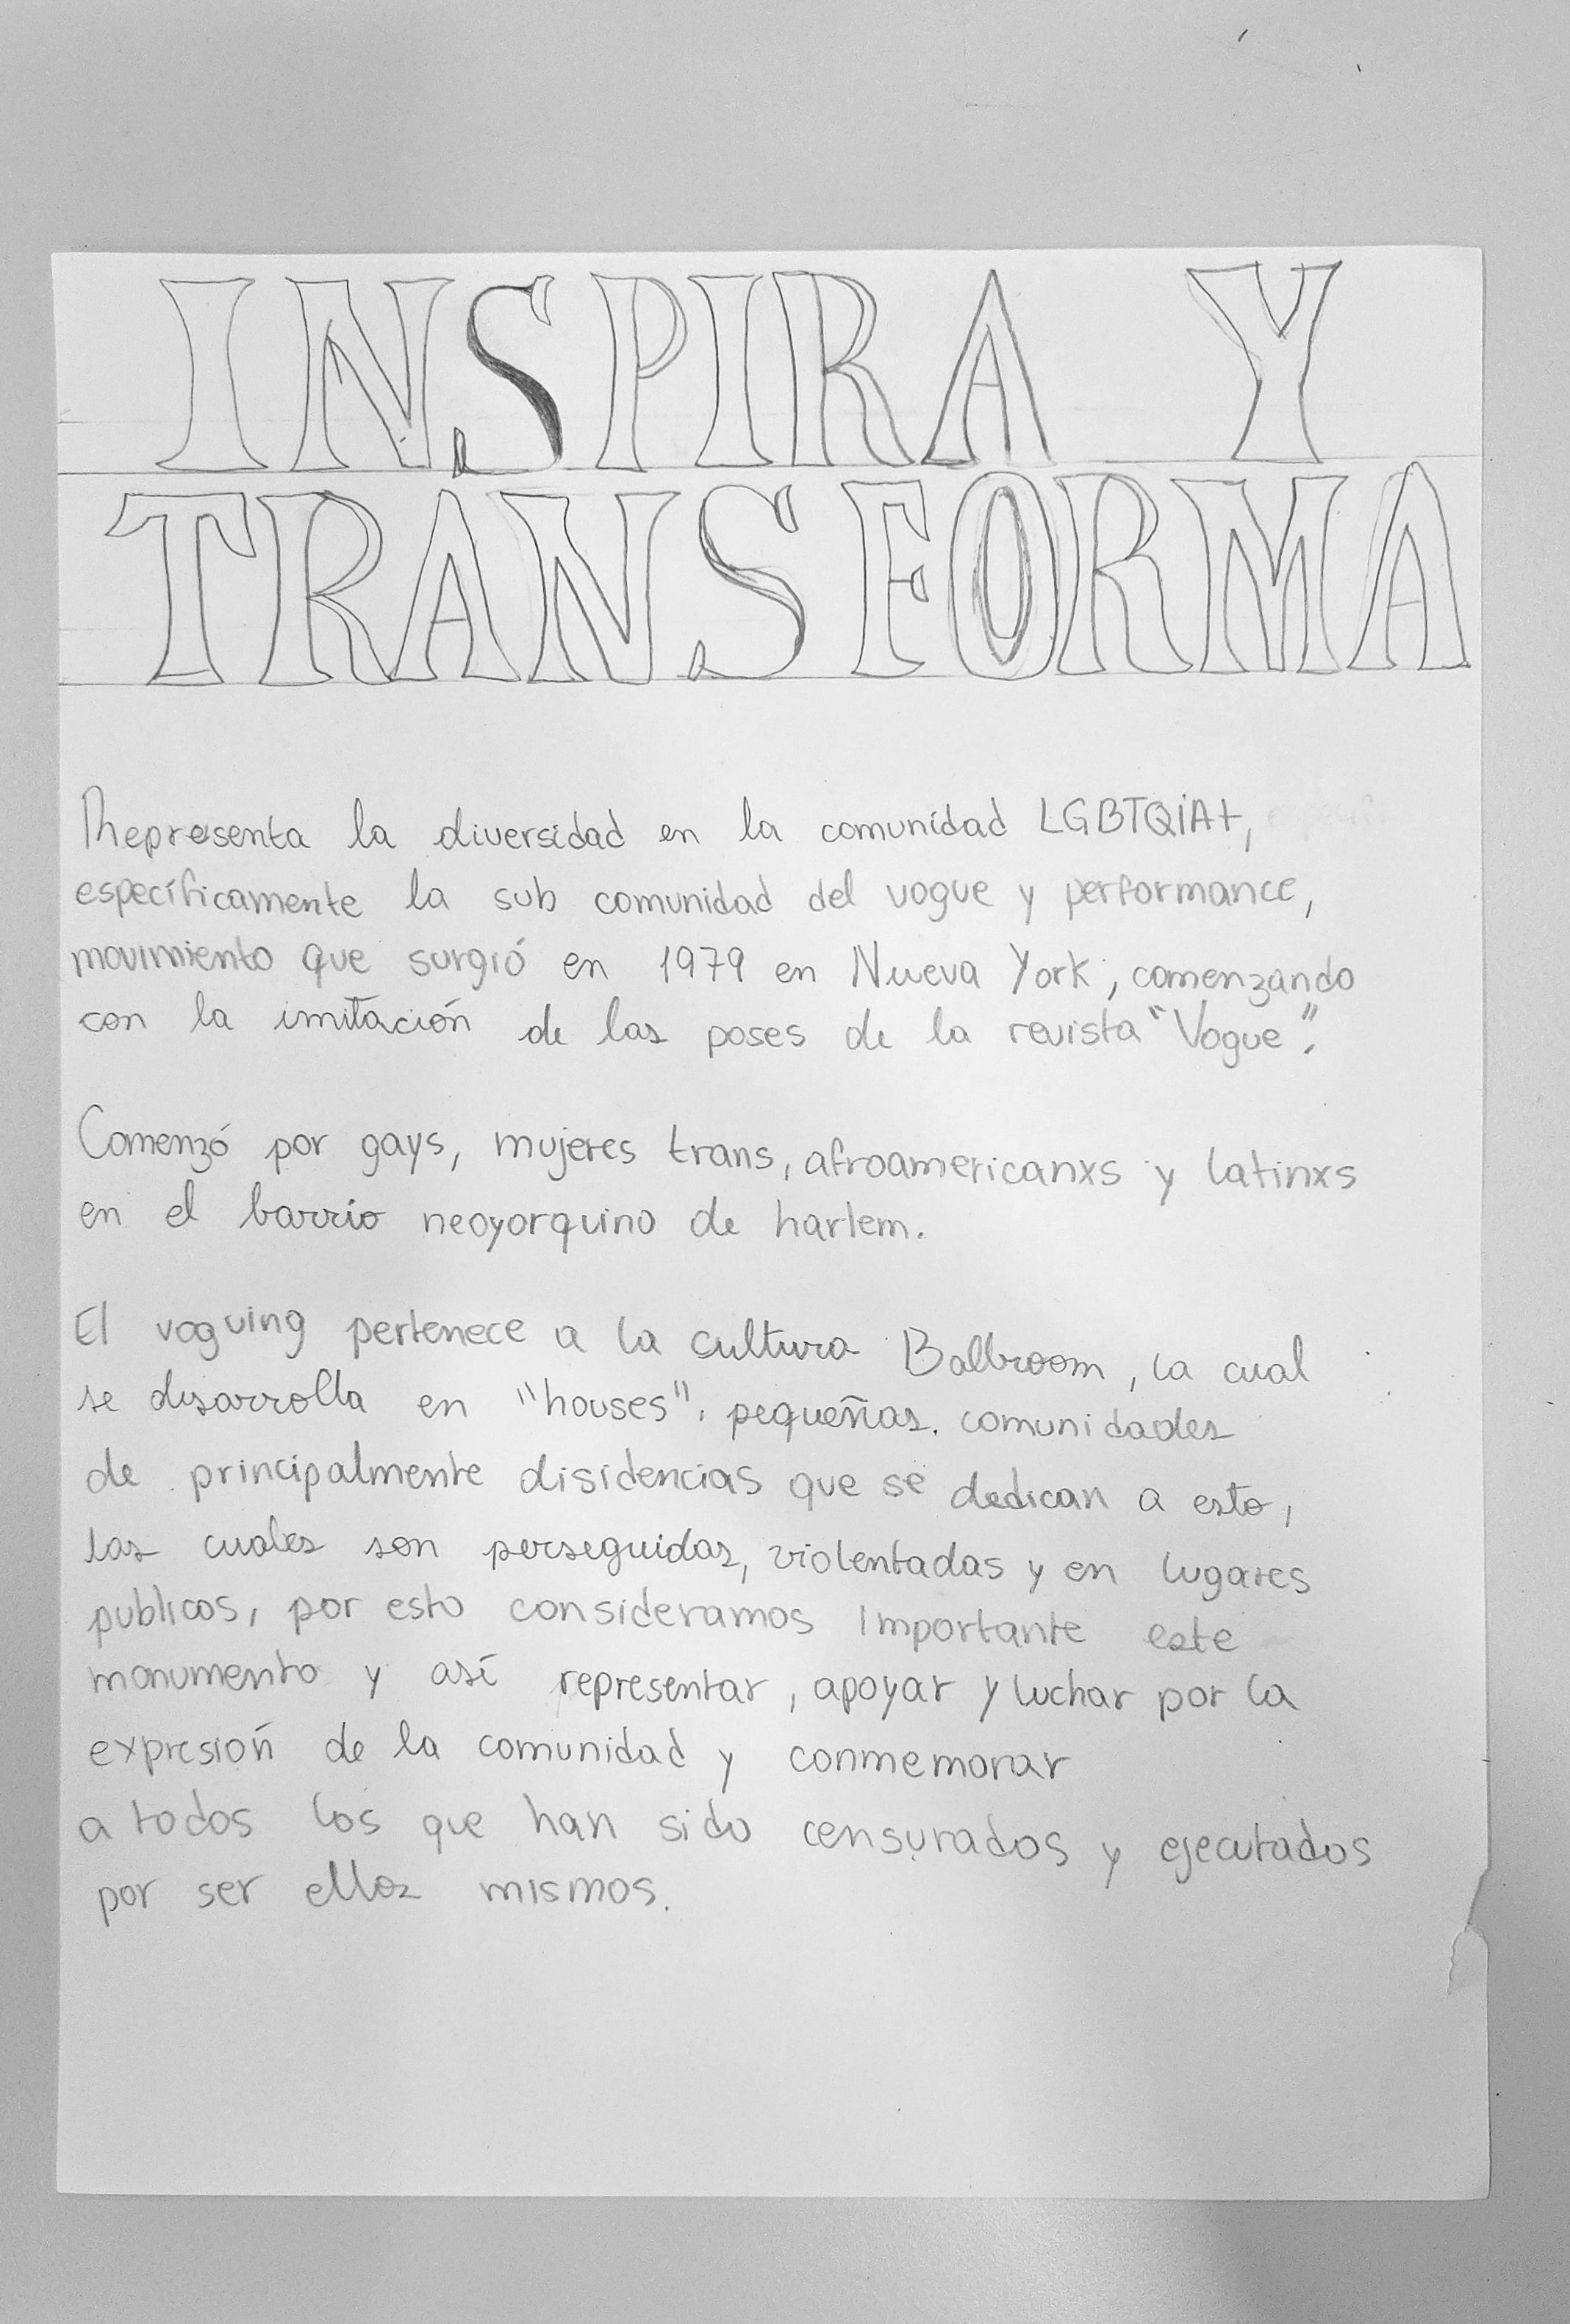 INSPIRA Y
TRANSFORMA
Representa la diversidad en la comunidad LGBTQiA+,
específicamente la sub comunidad del vogue y performance,
movimiento que surgió en 1979 en Nueva York, comenzando
con la imitación de las poses de la revista "Vogue".
Comenzó por gays, mujeres trans, afroamericanxs y latinxs
en el barrio neoyorquino de harlem.
El voguing pertenece a la cultura Ballroom, la cual
se desarrolla en "houses", pequeñas comunidades
de principalmente disidencias que se dedican a esto,
las cuales son perseguidas, violentadas y en lugares
publicos, por esto consideramos importante este
monumento y así representar, apoyar y luchar por la
expresión de la comunidad y conmemorar
a todos los que han sido censurados y ejecutados
por ser ellos mismos.